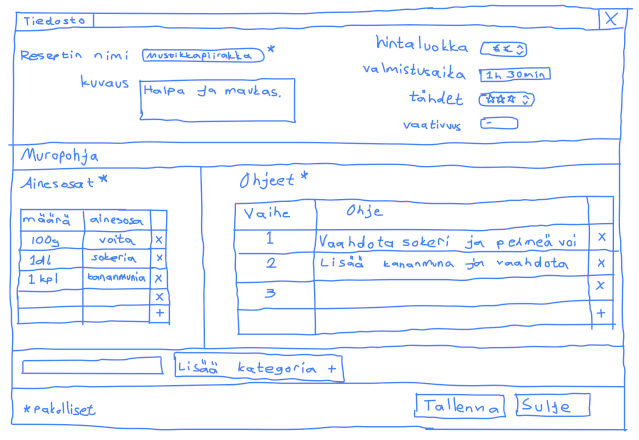 Tiedosto X
Reseptin nimi Mustikkapiirakka *
kuvaus Halpa ja maukas.
hintaluokka €€
valmistusaika 1h 30min
tähdet ☆☆☆
vaativuus -
Muropohja
Ainesosat *
määrä ainesosa
100g voita x
1dl sokeria x
1 kpl kananmunia x
x
+
Ohjeet *
Vaihe Ohje
1 Vaahdota sokeri ja pehmeä voi x
2 Lisää kananmuna ja vaahdota x
3 x
+
Lisää kategoria +
*pakolliset
Tallenna Sulje